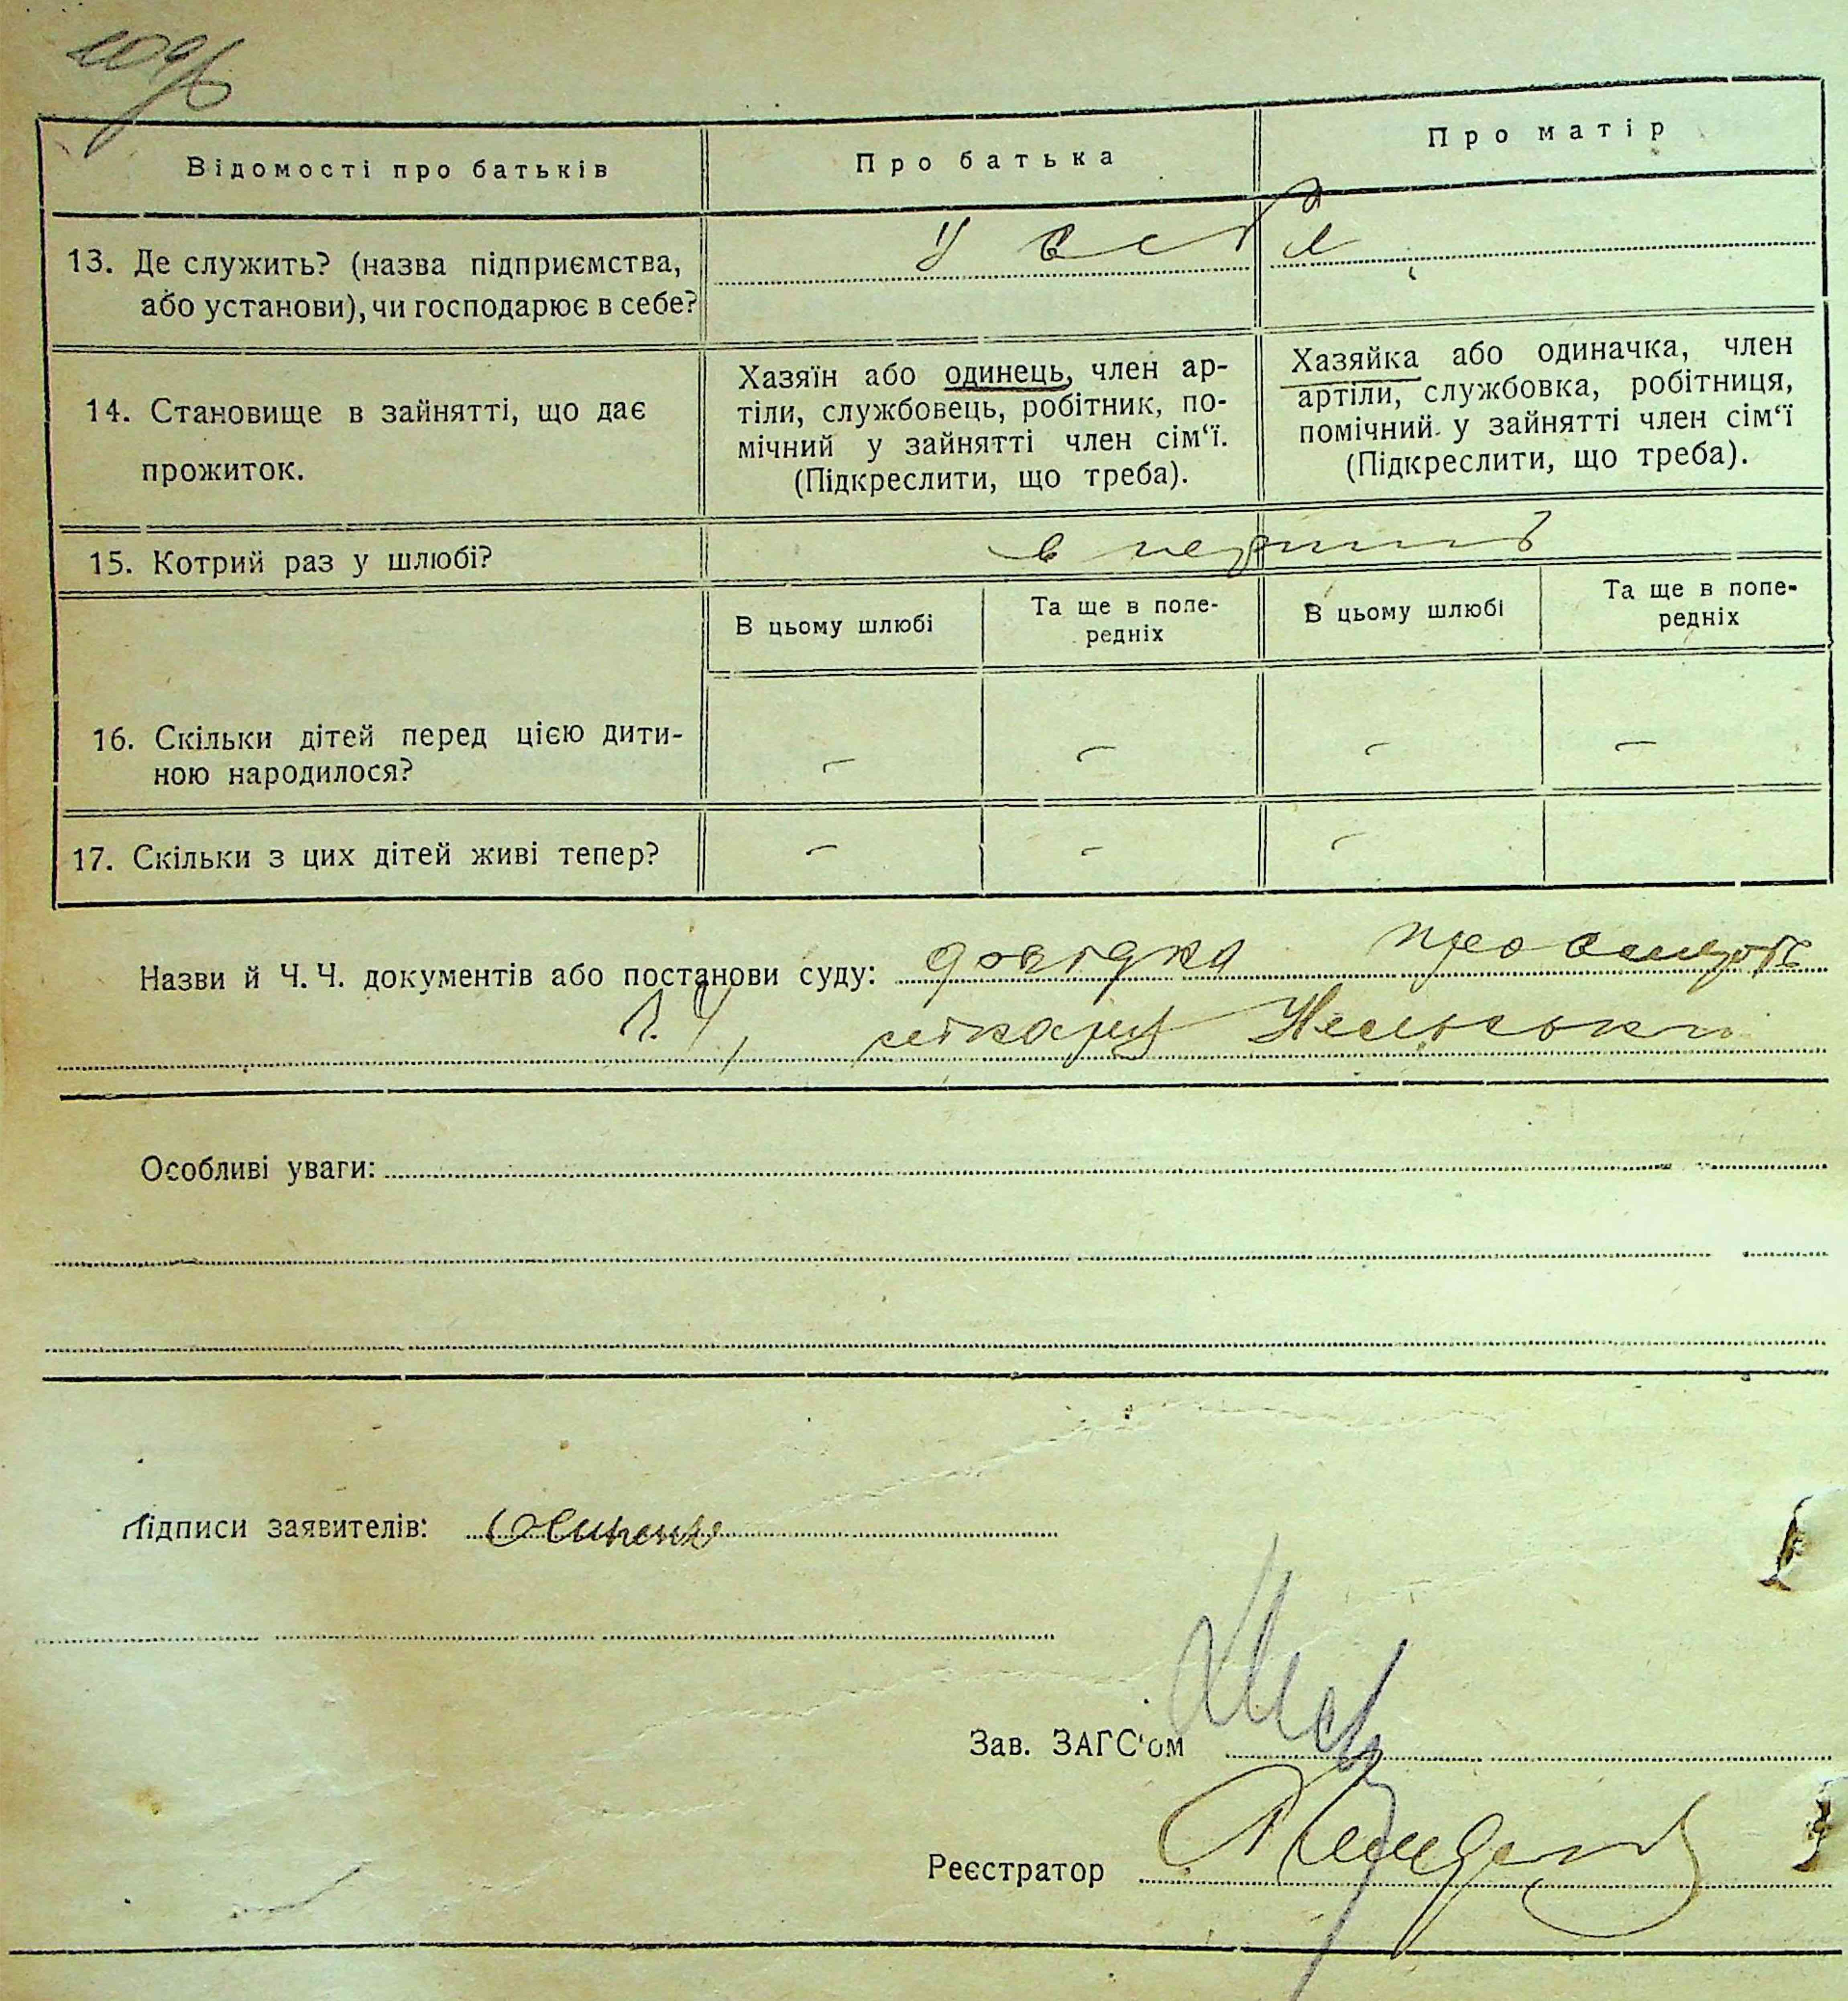 Відомості про батьків
Про батька
Про матір
13. Де служить? (назва підприємства, або установи), чи господарює в себе?
у себе
14. Становище в зайнятті, що дає прожиток.
Хазяїн або одинець, член ар-
тіли, службовець, робітник, по-
мічний у зайнятті член сім‘ї.
(Підкреслити, що треба).
Хазяйка або одиначка, член
артіли, службовка, робітниця,
помічний у зайнятті член сім‘ї
(Підкреслити, що треба).
15. Котрий раз у шлюбі?
в перший
В цьому шлюбі
Та ще в попе-
редніх
В цьому шлюбі
Та ще в попе-
редніх
16. Скільки дітей перед цією дити-
ною народилося?
– – – –
17. Скільки з цих дітей живі тепер?
– – –
Назви й Ч. Ч. документів або постанови суду: довідка про
лікаря
Особливі уваги:
Підписи заявителів:
Зав. ЗАГС‘ом
Реєстратор